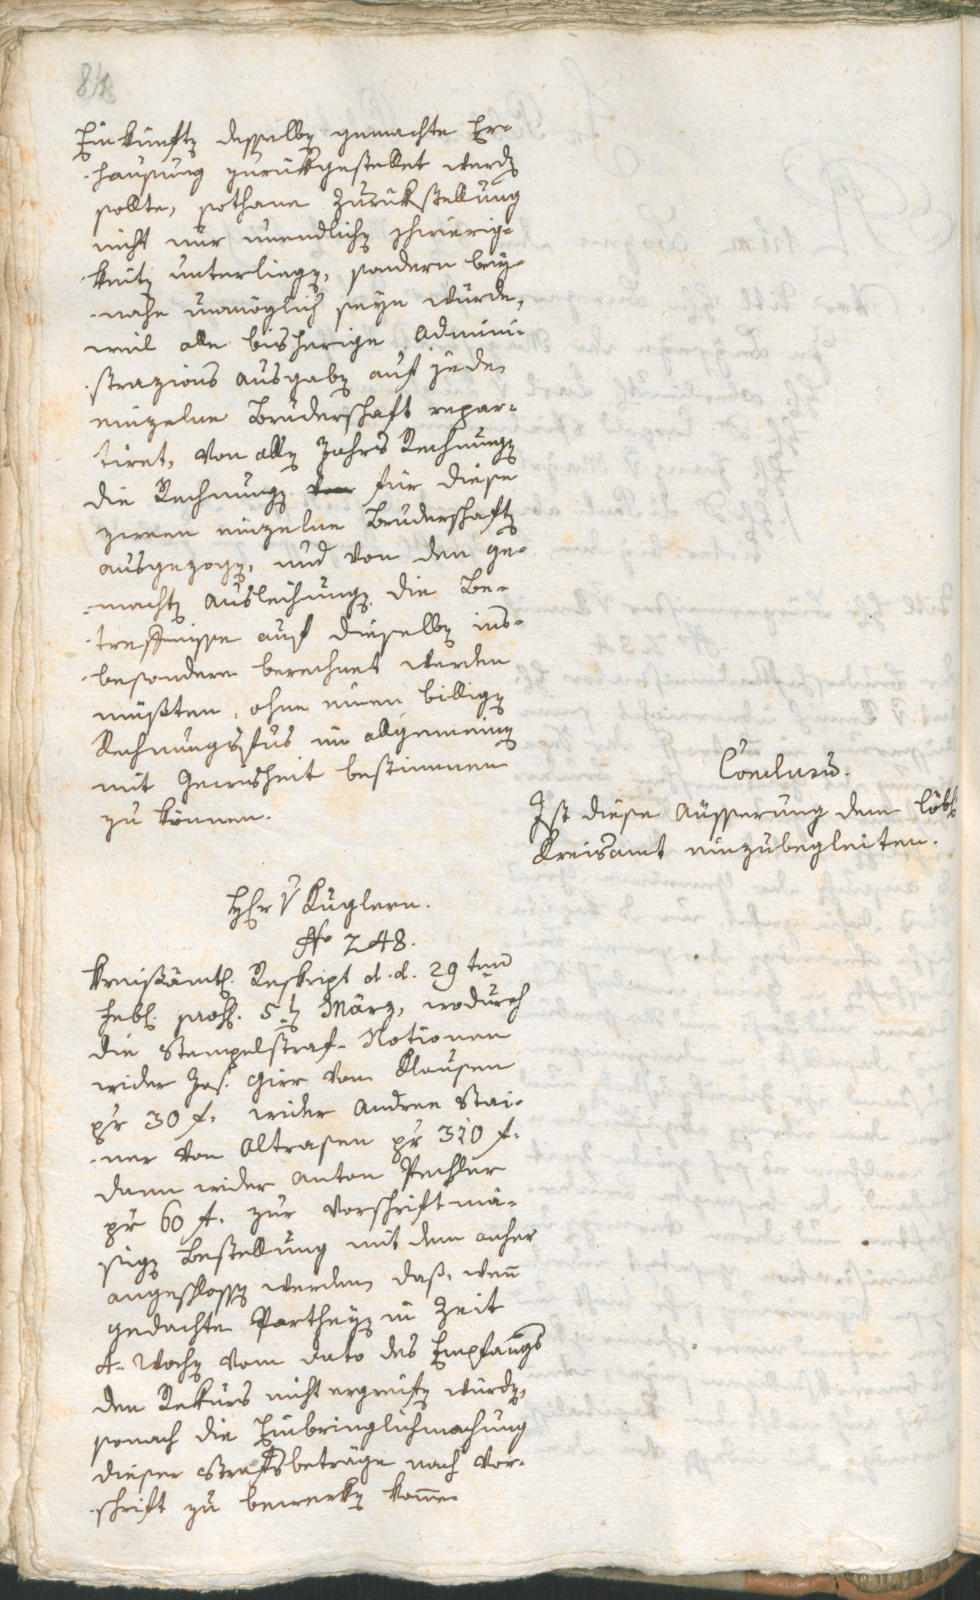 Einkünftẽ desselbẽ gemachte Er-
hausung zurükgestellet werdẽ
sollte, sothane Zurükstellung
nicht nur unendlichẽ schwierig-
keitẽ unterliegẽ, sondern bey-
nahe unmöglich seyn würde,
weil alle bisherige Admini-
strazions Ausgabẽ auf jede
einzelne Bruderschaft repar-
tiret, von allẽ Jahrs Rechnungẽ
die Rechnungẽ für diese
zween einzelne Bruderschaftẽ
ausgezogẽ, und von den ge-
machtẽ Ausleihungẽ die Be-
treffnisse auf dieselbẽ ins-
besondere berechnet werden
müßten, ohne einen billigẽ
Rechnungsfus im allgemeinẽ
mit Gewisheit bestimmen
zu können.
Conclusũ.
Ist diese Äusserung dem löbl.
Kreisamt einzubegleiten.
Hr v Kuglern.
No 248.
Kreisämtl. Reskript d. d. 29 ten
Febl. 5. März, wodurch
die Stempelstraf-Notionen
wider Jos. Girr von Klausen
pr 30 f. wider Andree Stai-
ner von Altrasen pr 310 f.
dann wider Anton Pechler
pr 60 f. zur vorschriftmä-
sigẽ Bestellung mit dem anher
angeschlossẽ werden, daß, wenn
gedachte Partheyẽ in Zeit
4. Wochẽ vom dato des Empfangs
den Rekurs nicht ergreifẽ würdẽ,
sonach die Einbringlichmachung
dieser Strafsbeträge nach Vor-
schrift zu bewerkẽ komme.